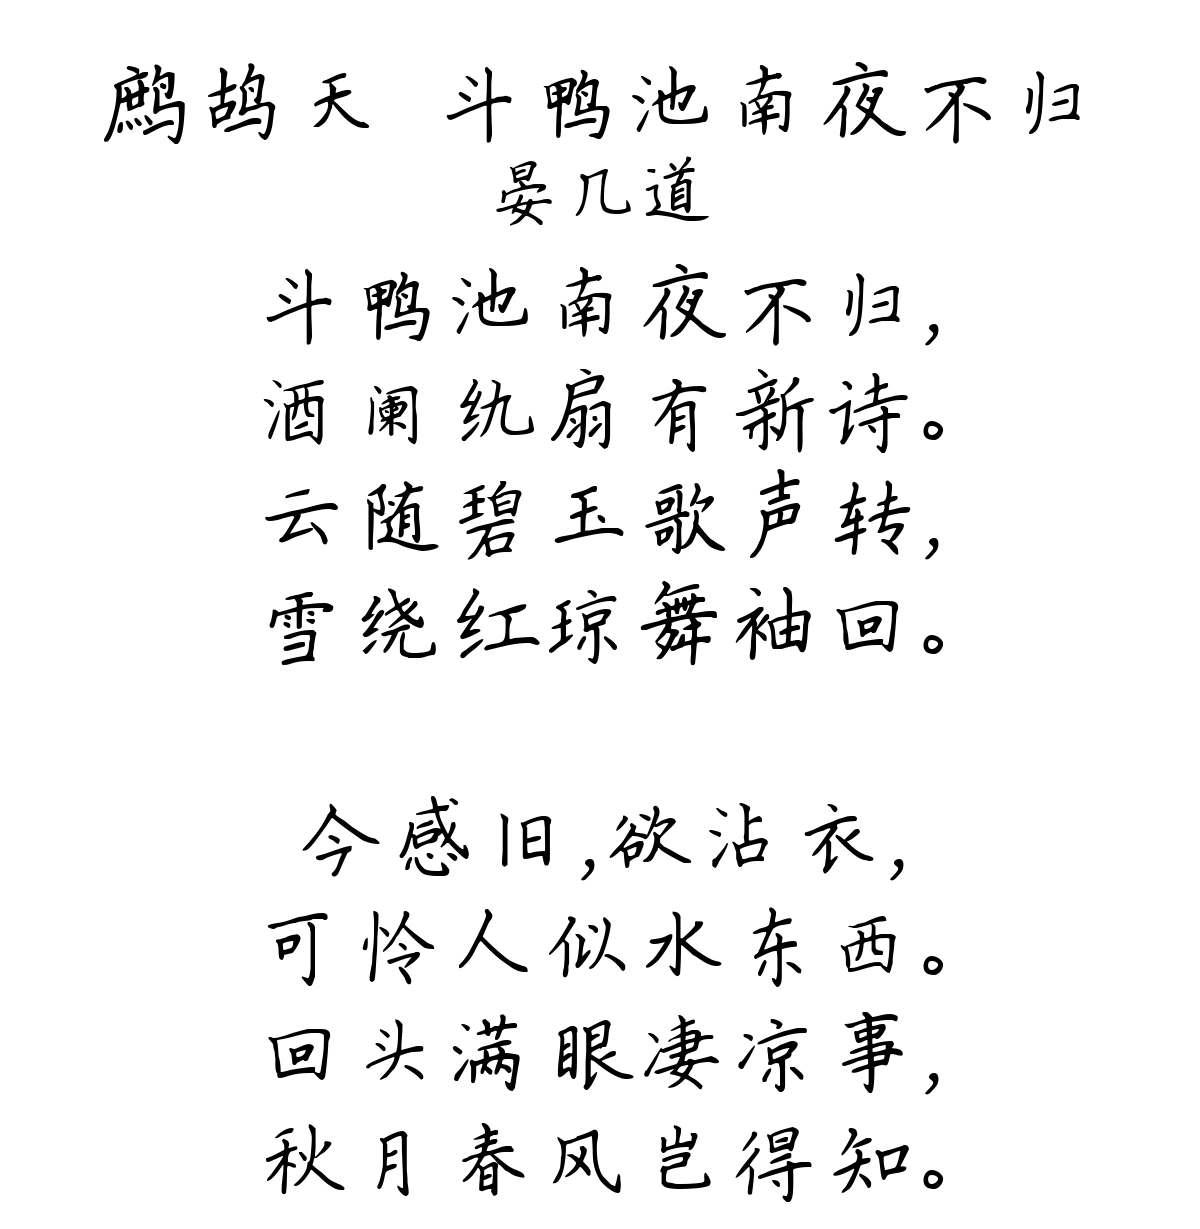 鹧鸪天 斗鸭池南夜不归
晏几道
斗鸭池南夜不归,
酒阑纨扇有新诗。
云随碧玉歌声转,
雪绕红琼舞袖回。
今感旧,欲沾衣,
可怜人似水东西。
回头满眼凄凉事,
秋月春风岂得知。